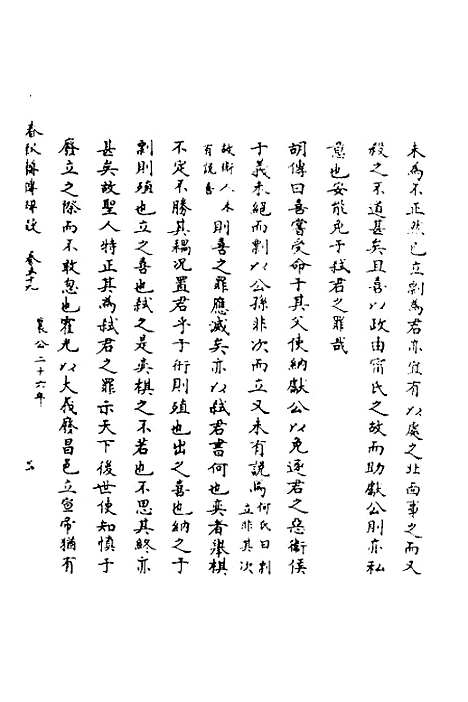 未為不正然已立剽為君亦宜有以處之北面事之而又
殺之不道甚矣且喜以政由甯氏之故而助獻公則亦私
意也安能免于弒君之罪哉
胡傳曰喜嘗受命于其父使納獻公以免逐君之惡衛侯
于義未絕而剽以公孫非次而立又未有說焉何氏曰剽立非其次
故衛人未有說喜則喜之罪應減矣亦以弒君書何也奕者舉棋
不定不勝其耦況置君乎于衎則殖也出之喜也納之于
剽則殖也立之喜也弒之是奕棋之不若也不思其終亦
甚矣故聖人特正其為弒君之罪示天下後世使知慎于
廢立之際而不敢忽也霍光以大義廢昌邑立宣帝猶有
春秋 卷五十九
襄公二十六年